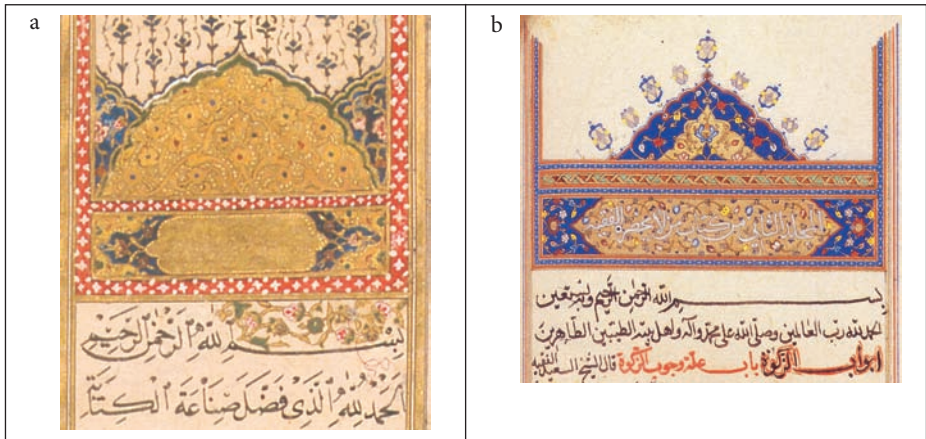 a
بِسْمِ اللهِ الرَّحْمٰنِ الرَّحِيْمِ
اَلْحَمْدُ لِلّٰهِ الَّذِى فَضَّلَ صِنَاعَةَ الْكِتَابَةِ
b
المجلد الثانى من كتاب من لا يحضره الفقيه
بسم الله الرحمن الرحيم وبه نستعين
الحمد لله رب العالمين وصلى الله على محمد وآله واهل بيته الطيبين الطاهرين
ابواب الزكوة باب علة وجوب الزكوة قال الشيخ السعيد الفقيه